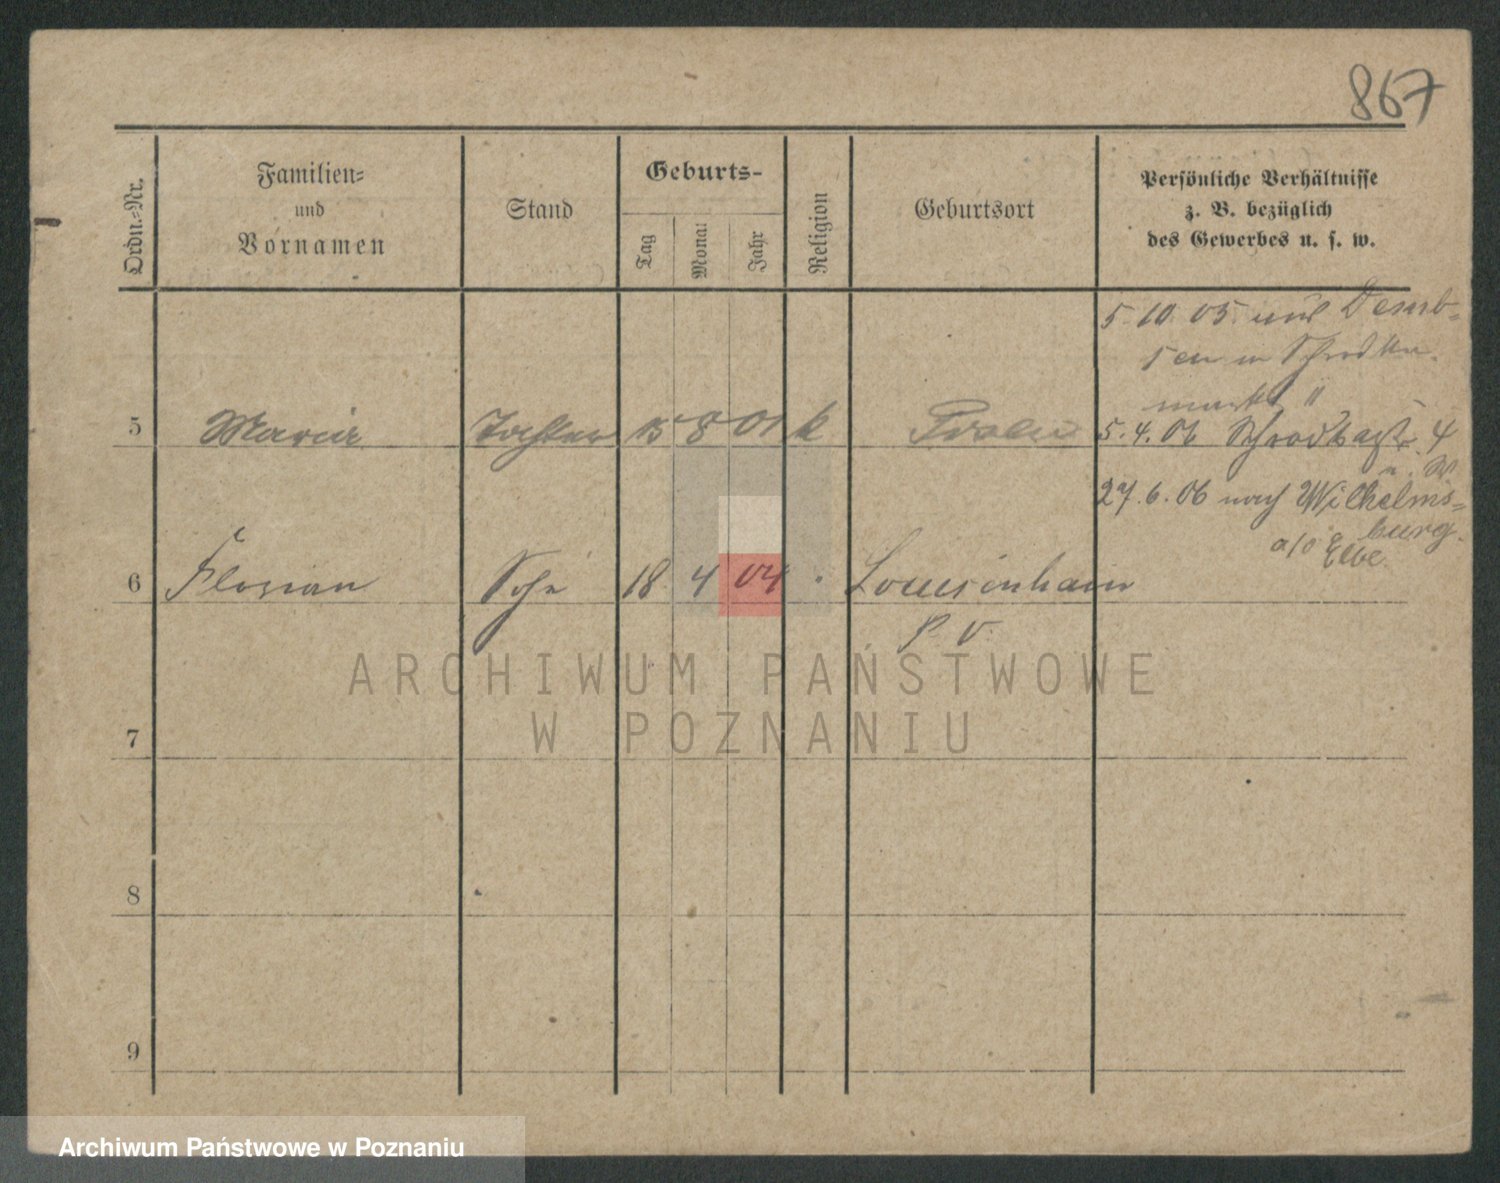 867
Ordn.-Nr.
Familien-
und
Vornamen
Stand
Geburts-
Tag
Monat
Jahr
Religion
Geburtsort
Persönliche Verhältnisse
z. B. bezüglich
des Gewerbes u. s. w.
5. 10. 05
5 Maria Tochter 15 8 01 k
5. 4. 06 4
27. 6. 06 nach Wilhelms-
burg.
a/d Elbe.
6 Florian Sohn 18 4 04 " Louisenhain
P. V.
ARCHIWUM PAŃSTWOWE
W POZNANIU
7
8
9
Archiwum Państwowe w Poznaniu